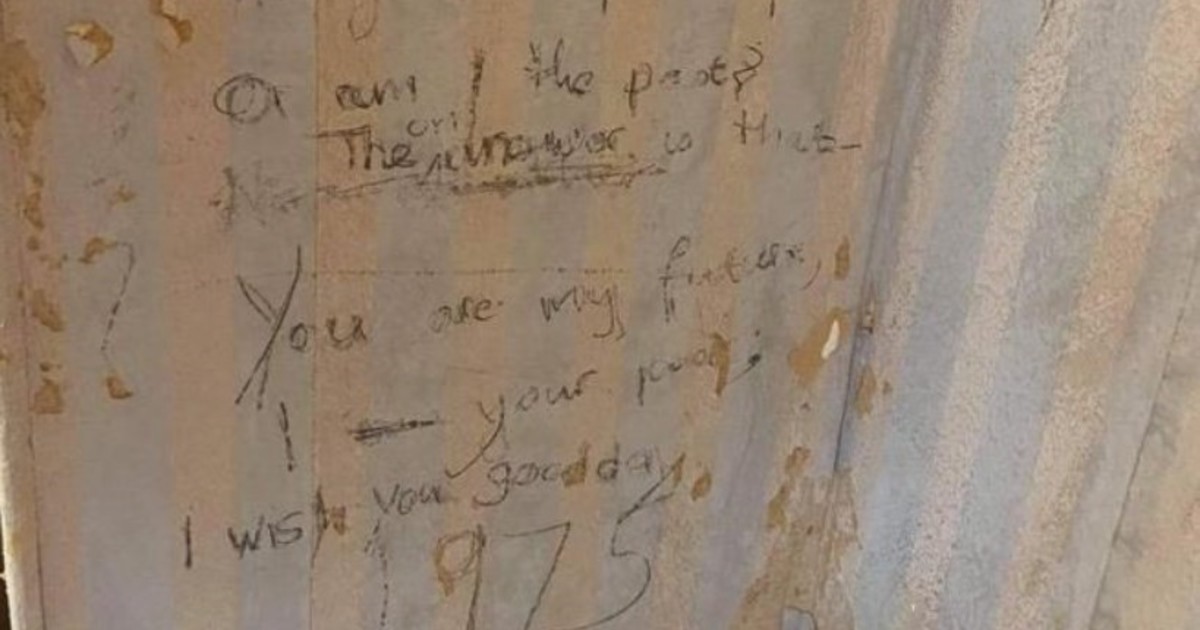 Or am I the past?
The only answer is that
You are my future,
I your past;
I wish you good day.
1975